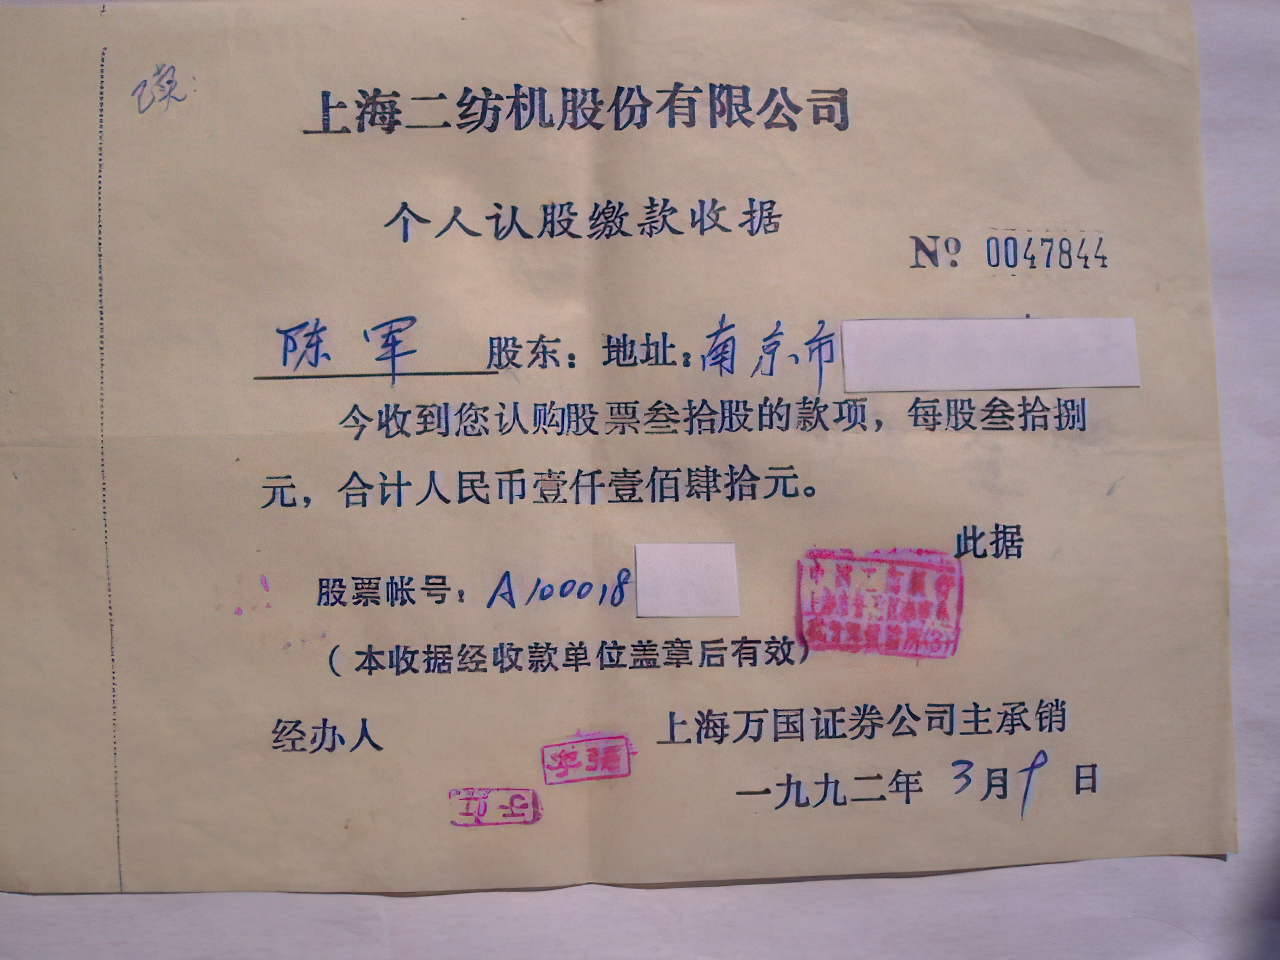 上海二纺机股份有限公司
个人认股缴款收据
Nº 0047844
陈军 股东：地址：南京市
今收到您认购股票叁拾股的款项，每股叁拾捌
元，合计人民币壹仟壹佰肆拾元。
此据
股票帐号：A100018
（本收据经收款单位盖章后有效）
经办人
上海万国证券公司主承销
一九九二年 3月9日